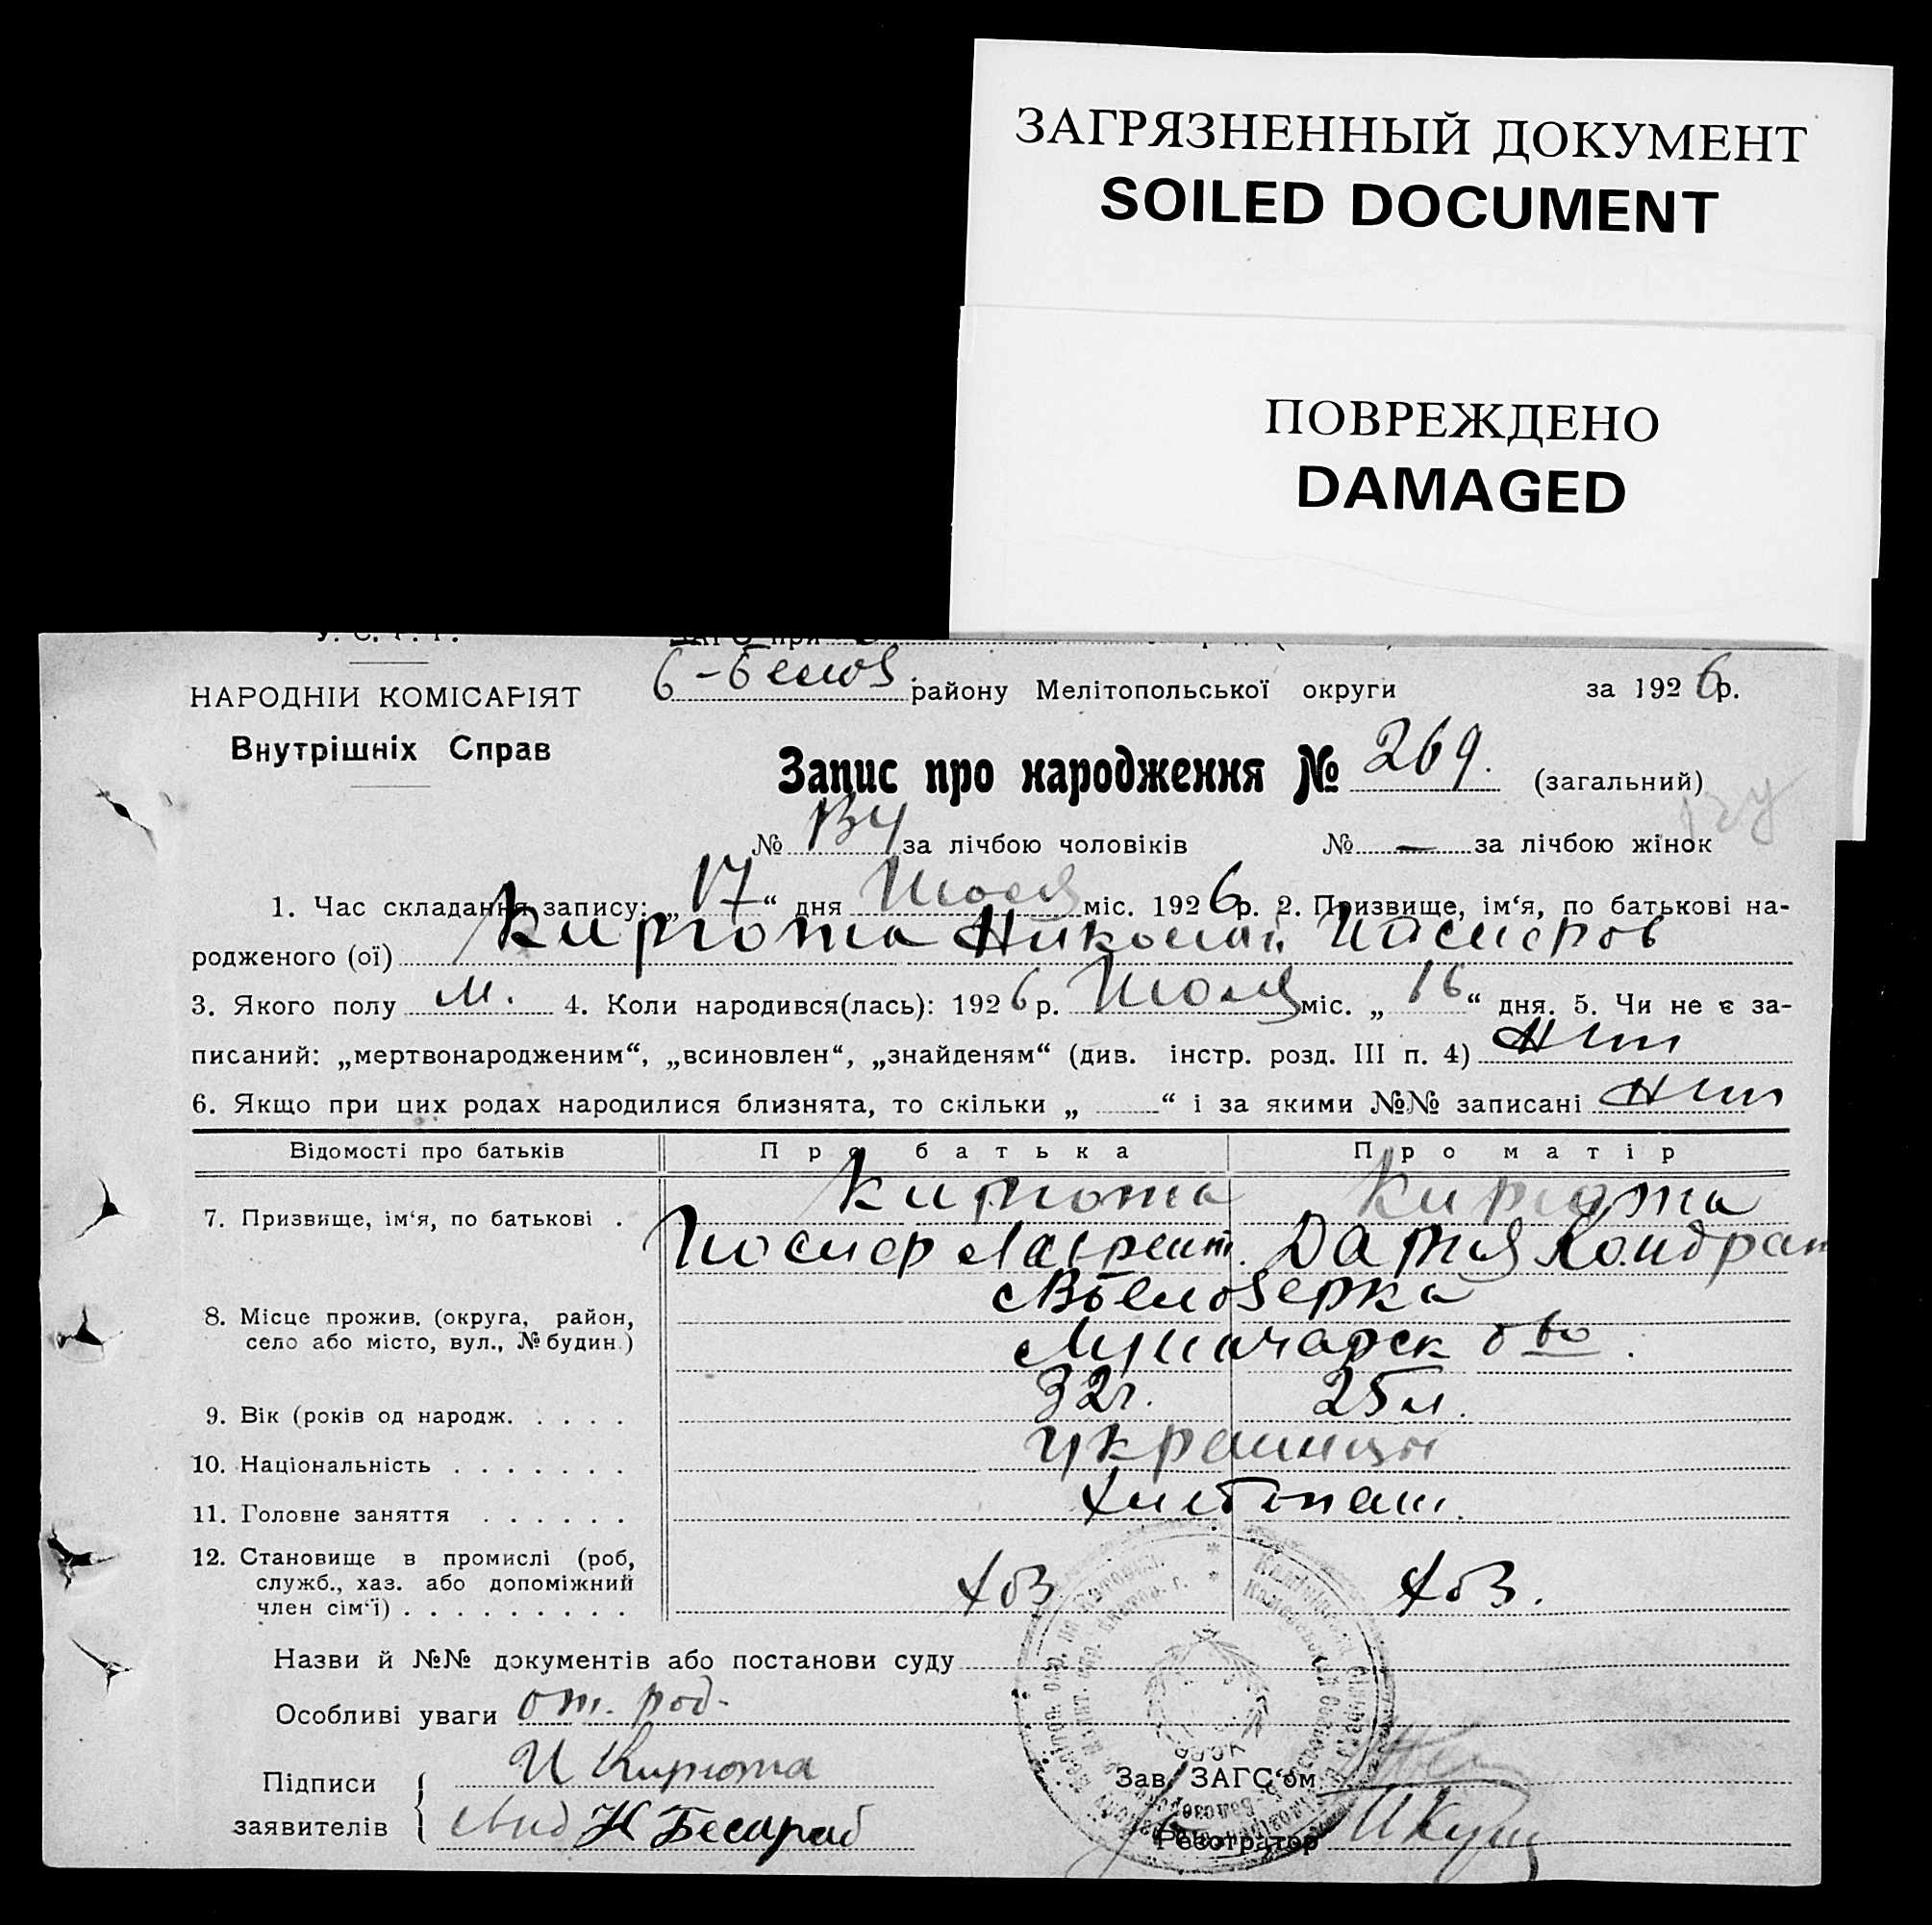 ЗАГРЯЗНЕННЫЙ ДОКУМЕНТ
SOILED DOCUMENT
ПОВРЕЖДЕНО
DAMAGED
НАРОДНІЙ КОМІСАРІЯТ
Внутрішніх Справ
району Мелітопольської округи за 1926р.
Запис про народження № 269. (загальний)
№ 134 за лічбою чоловіків № — за лічбою жінок
1. Час складання запису: „17“ дня Июля міс. 1926р. 2. Призвище, ім‘я, по батькові на-
родженого (ої) Кирюта Николай Иосифов
3. Якого полу м. 4. Коли народився(лась): 1926р. Июля міс. „16“ дня. 5. Чи не є за-
писаний: „мертвонародженим“, „всиновлен“, „знайденям“ (див. інстр. розд. III п. 4) нет
6. Якщо при цих родах народилися близнята, то скільки „ “ і за якими №№ записані нет
Відомості про батьків Про батька Про матір
7. Призвище, ім‘я, по батькові . Кирюта Кирюта
Иосиф Лаврент. Дария Кондрат
8. Місце прожив. (округа, район,
село або місто, вул., № будин.)
Белозерка
Луначарск. о во.
9. Вік (років од народж. . . . . 32г. 25 л.
10. Національність . . . . . . . украинцы
11. Головне заняття . . . . . . хлебопаш.
12. Становище в промислі (роб,
служб., хаз. або допоміжний
член сім‘ї) . . . . . . . . . хоз хоз.
Назви й №№ документів або постанови суду
Особливі уваги от. род.
Підписи И Кирюта Зав. ЗАГС‘ом
заявителів Н Бесараб Реєстратор